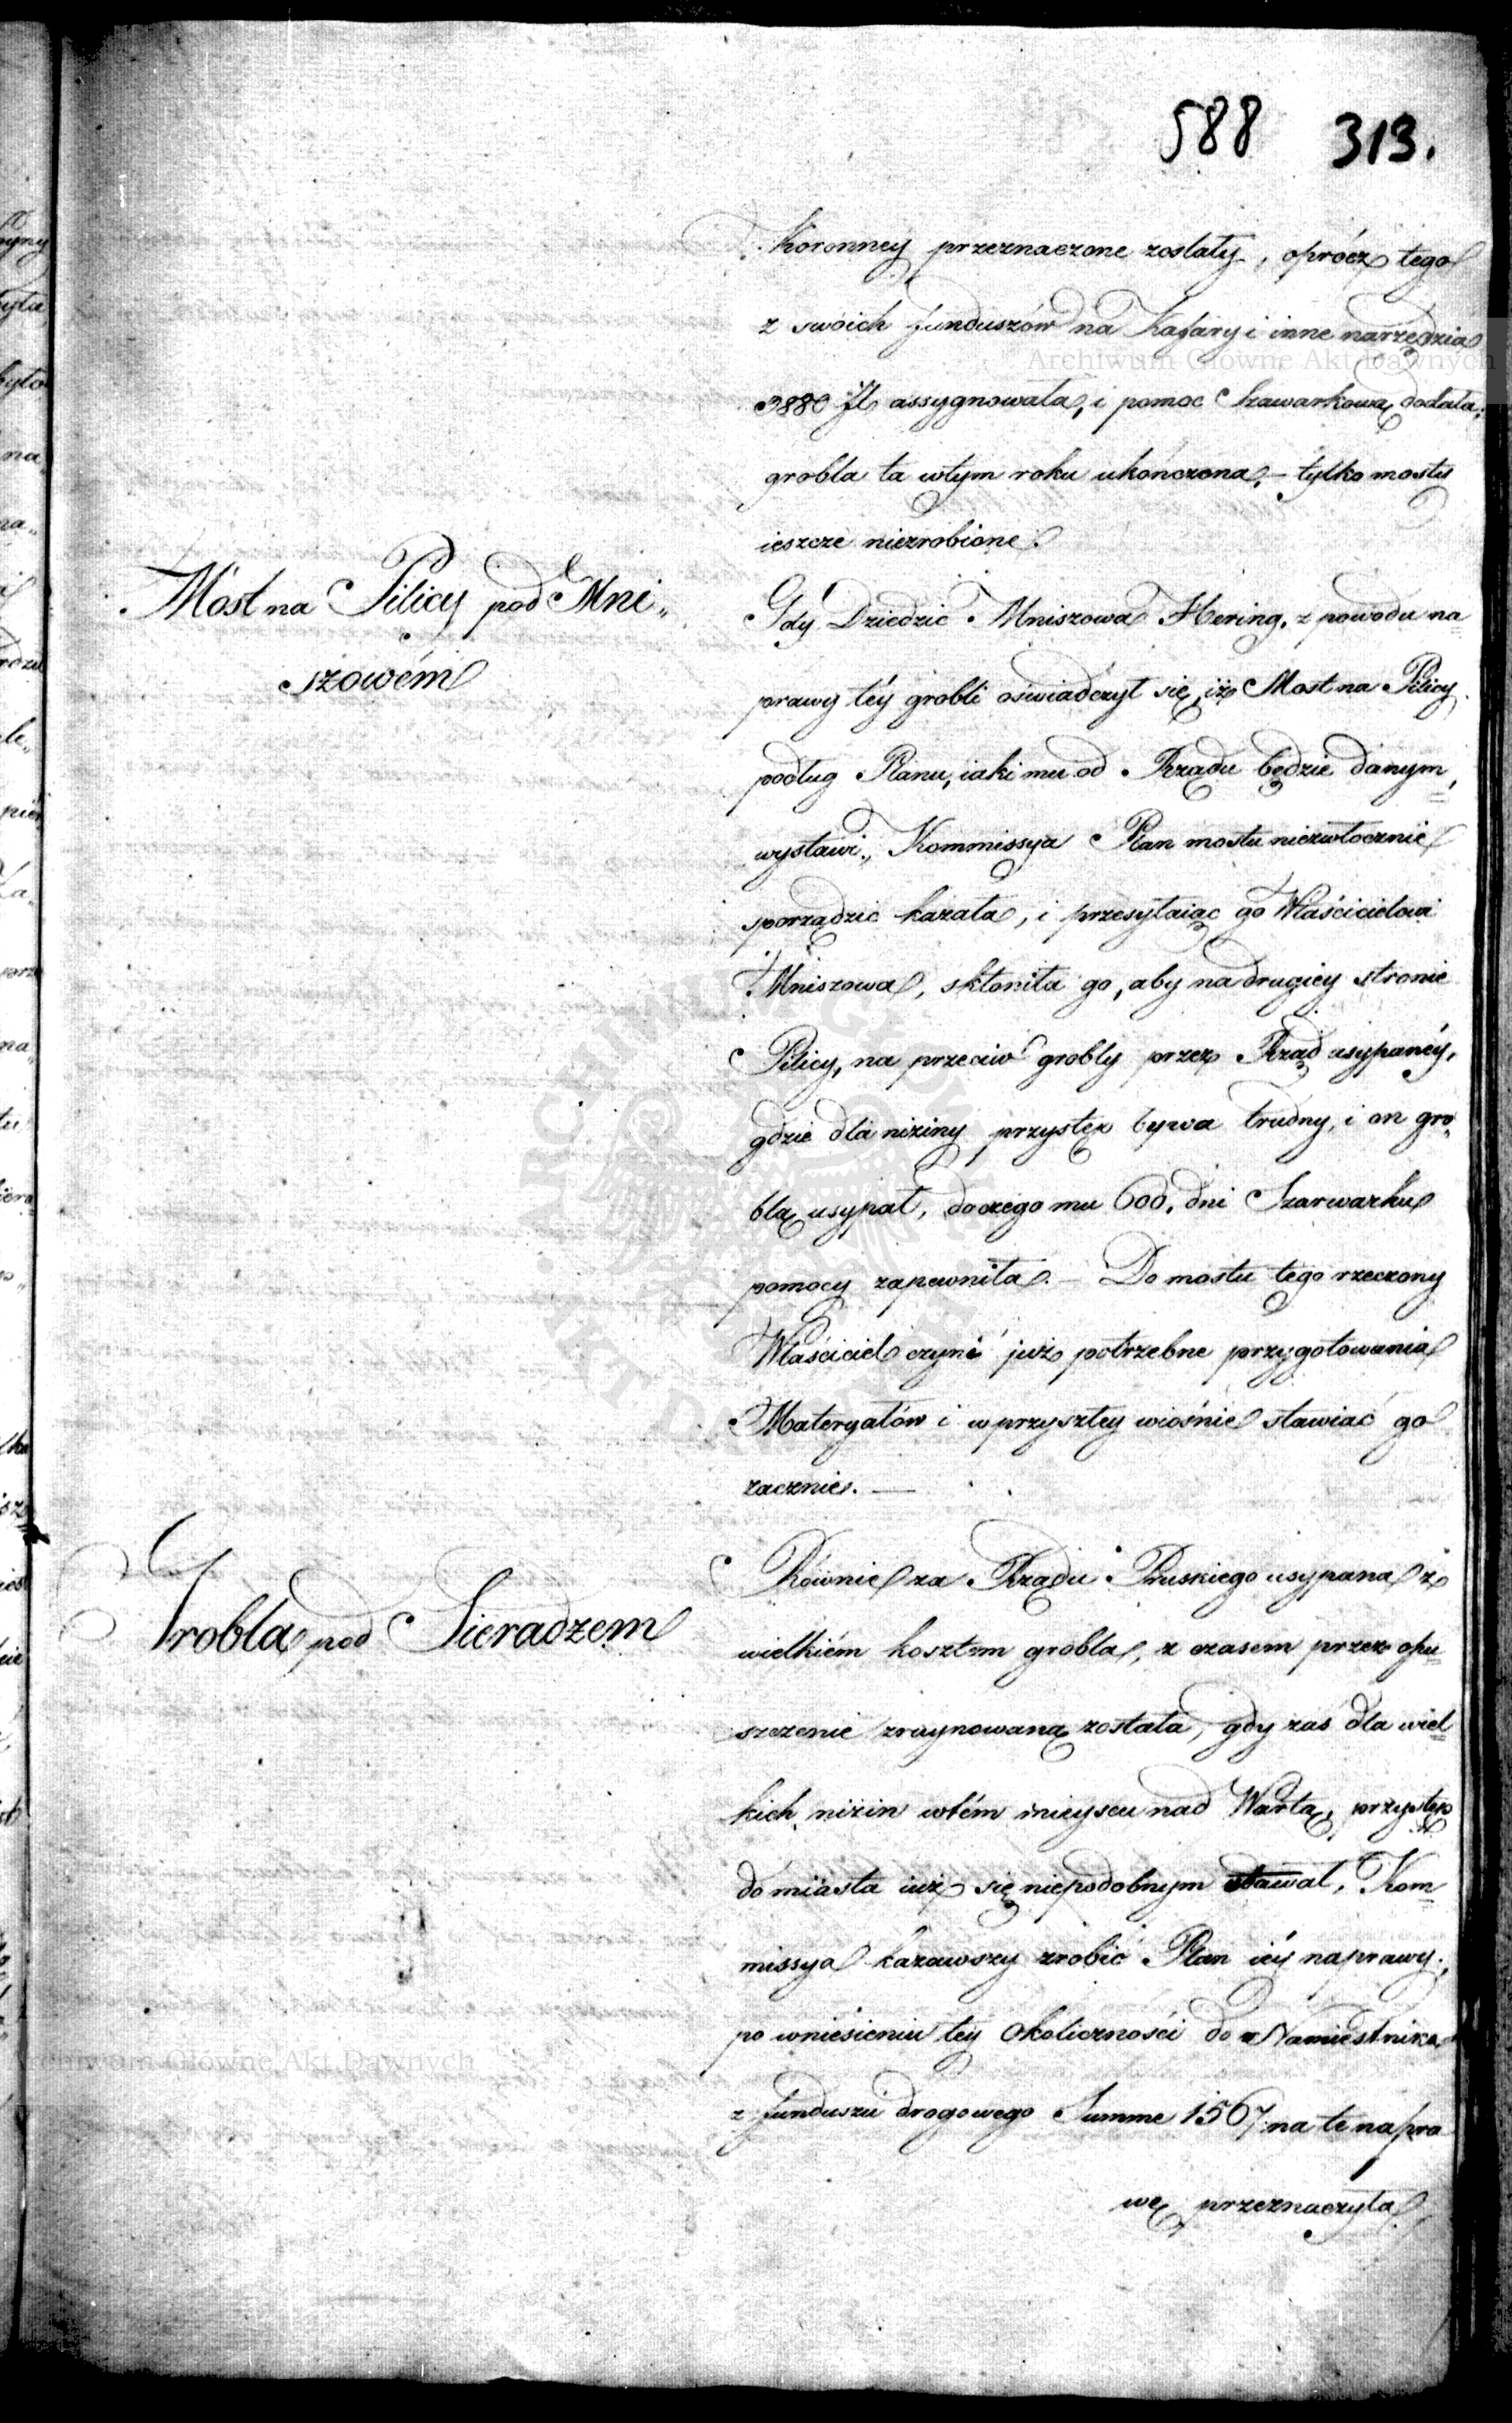 588 313.
Koronney przeznaczone zostały, oprócz tego
z swoich funduszów na Kafary i inne narzędzia
3880 Zł assygnowała, i pomoc Szarwarkową dodała;
grobla ta wtym roku ukończona, – tylko mosty
ieszcze niezrobione.
Most na Pilicy pod Mni„
szowém
Gdy Dziedzic Mniszowa Hering, z powodu na=
prawy téy grobli oświadczył się, iż Most na Pilicy
podług Planu, iaki mu od Rządu będzie danym,
wystawi, Kommissya Plan mostu niezwłocznie
sporządzić kazała, i przesyłaiąc go Właścicielowi
Mniszowa, skłoniła go, aby na drugiey stronie
Pilicy, na przeciw grobly przez Rząd usypanéy,
gdzie dla niziny przystęp bywa trudny, i on gro„
blą usypał, do czego mu 600. dni Szarwarku
pomocy zapewniła. – Do mostu tego rzeczony
Właściciel czyni już potrzebne przygotowania
Materyałów i w przyszłey wiośnie stawiać go
zacznie. —
Grobla pod Sieradzem
Równie za Rządu Pruskiego usypana z
wielkiém kosztem grobla, z czasem przez opu=
szczenie zruynowaną została, gdy zaś dla wiel=
kich nizin wtém mieyscu nad Wartą, przystęp
do miasta iuż się niepodobnym stawał, Kom=
missya kazawszy zrobić Plan iéy naprawy,
po wniesieniu téy okoliczności do Namiestnika
z funduszu drogowego Summe 1567 na te napra
wę przeznaczyła,
Archiwum Główne Akt Dawnych
Archiwum Główne Akt Dawnych
ARCHIWUM GŁÓWNE AKT DAWNYCH